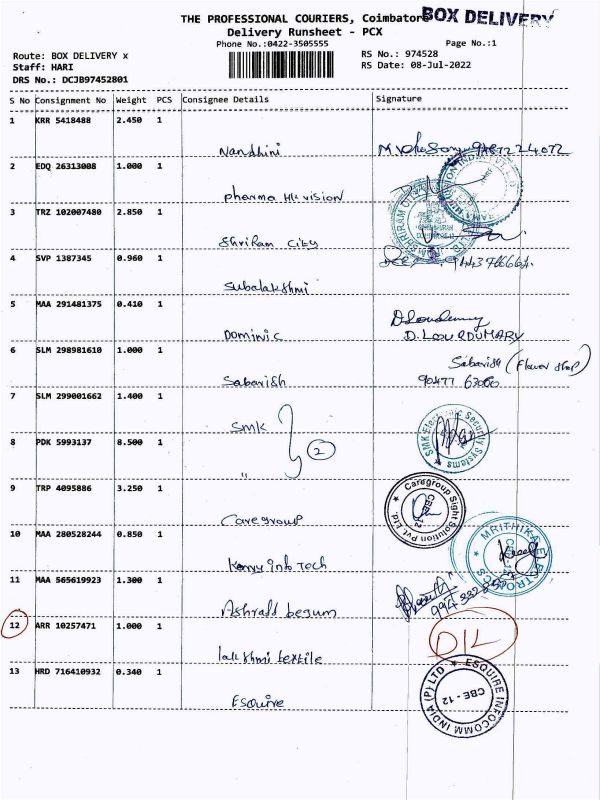 THE PROFESSIONAL COURIERS, Coimbatore
BOX DELIVERY
Delivery Runsheet - PCX
Phone No.:0422-3505555
Page No.:1
Route: BOX DELIVERY x
RS No.: 974528
Staff: HARI
RS Date: 08-Jul-2022
DRS No.: DCJB97452801
S No Consignment No Weight PCS Consignee Details Signature
1 KRR 5418488 2.450 1
Nandhini
2 EDQ 26313008 1.000 1
pharma HK vision
3 TRZ 102007480 2.850 1
Shriram City
4 SVP 1387345 0.960 1
Subalakshmi
5 MAA 291481375 0.410 1
Dominic
D. LOURDUMARY
6 SLM 298981610 1.000 1
Sabarish (Flower shop)
Sabarish
90477 63066
7 SLM 299001662 1.400 1
SMK
SMK Electronic Security Systems
2
8 PDK 5993137 8.500 1
"
9 TRP 4095886 3.250 1
Caregroup
Caregroup Sight Solution Pvt. Ltd.
CBE-12
10 MAA 280528244 0.850 1
info Tech
MRITHIKA ELECTRONICS
11 MAA 565619923 1.300 1
Ashraff begum
12 ARR 10257471 1.000 1
lakshmi textile
D/L
13 HRD 716410932 0.340 1
Esquire
ESQUIRE INFOCOMM INDIA (P) LTD
CBE - 12